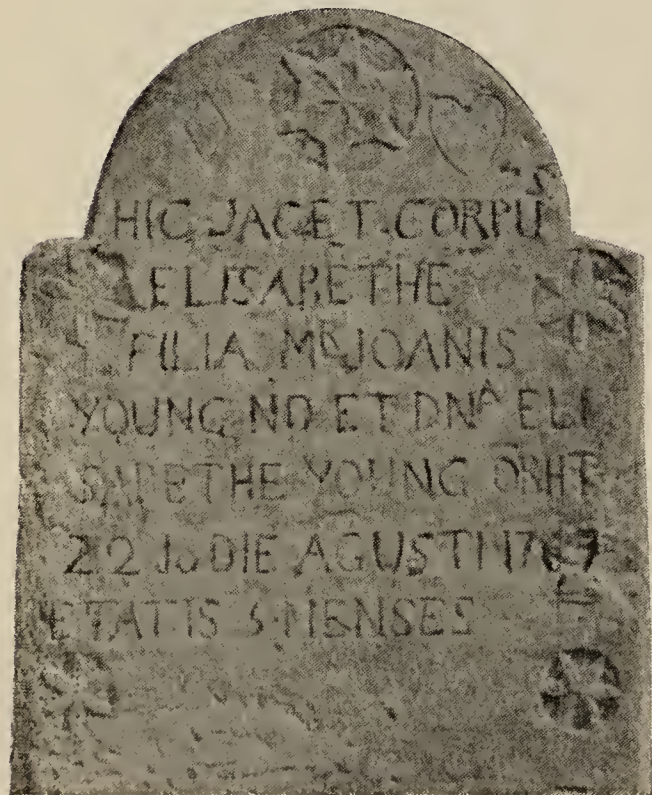 HIC JACET CORPUS
ELISABETHE
FILIA MR JOANIS
YOUNG ND ET DNA ELI
SABETHE YOUNG OBIIT
22 Jo DIE AGUSTI
ETATIS MENSES